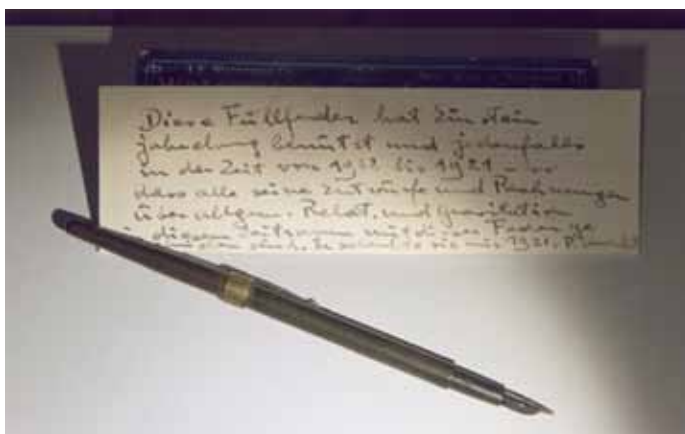 Diese Füllfeder hat Einstein
jahrelang benützt und jedenfalls
in der Zeit von bis 1921
dass alle seine Entwürfe und Rechnungen
über allgem. Relat. und Gravitation
in diesem Zeitraum mit dieser Feder ge
sind. Er schenkte sie mir 1921. P.